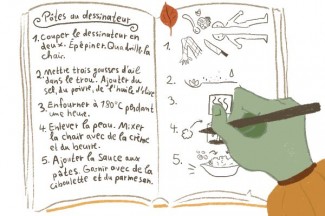 Pâtes au dessinateur
1. Couper le dessinateur en
deux. Épépiner. Quadriller la
chair.
2. Mettre trois gousses d'ail
dans le trou. Ajouter du
sel, du poivre, de l'huile d'olive
3. Enfourner à 180°C pendant
une heure.
4. Enlever la peau. Mixer
la chair avec de la crème
et du beurre.
5. Ajouter la sauce aux
pâtes. Garnir avec de la
ciboulette et du parmesan.
1.
2.
3.
4.
5.